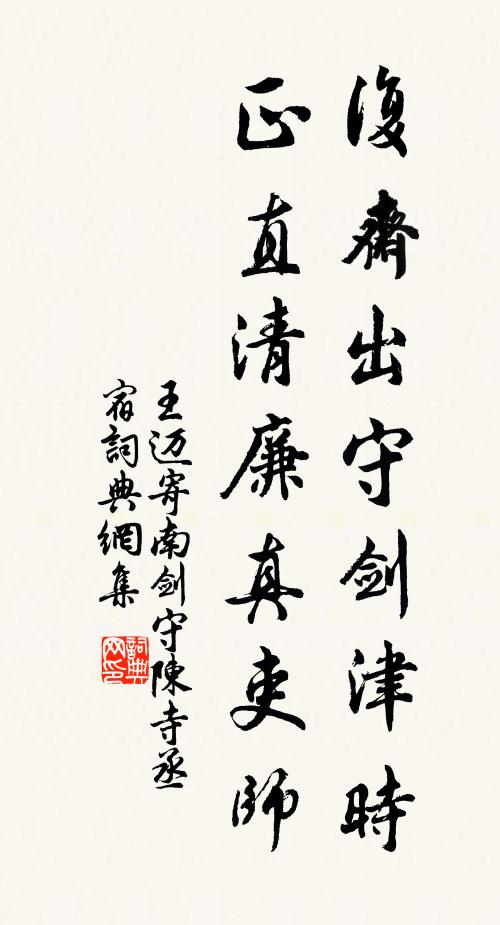 復齋出守劍津時
正直清廉真吏師
王迈寄南劍守陳寺丞
宿詞典網集
詞典網印